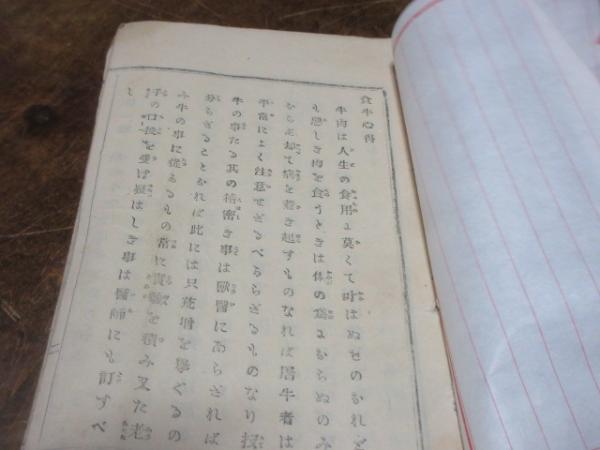 食牛心得
牛肉は人生の食用に莫くて叶はぬものかれど
も悪しき肉を食うときは体の為よからぬのみ
から却て病を惹き起すものなれば屠牛者は
平常によく注意せざるべからざるものなり
牛の事たる其の精密き事は獣医にあらざれば
分らざることかれば此には只荒増を挙ぐるの
み牛の事に従ふるもの常に実験を積み又た老
の口授を受け疑はしき事は医師にも訂すべ
し